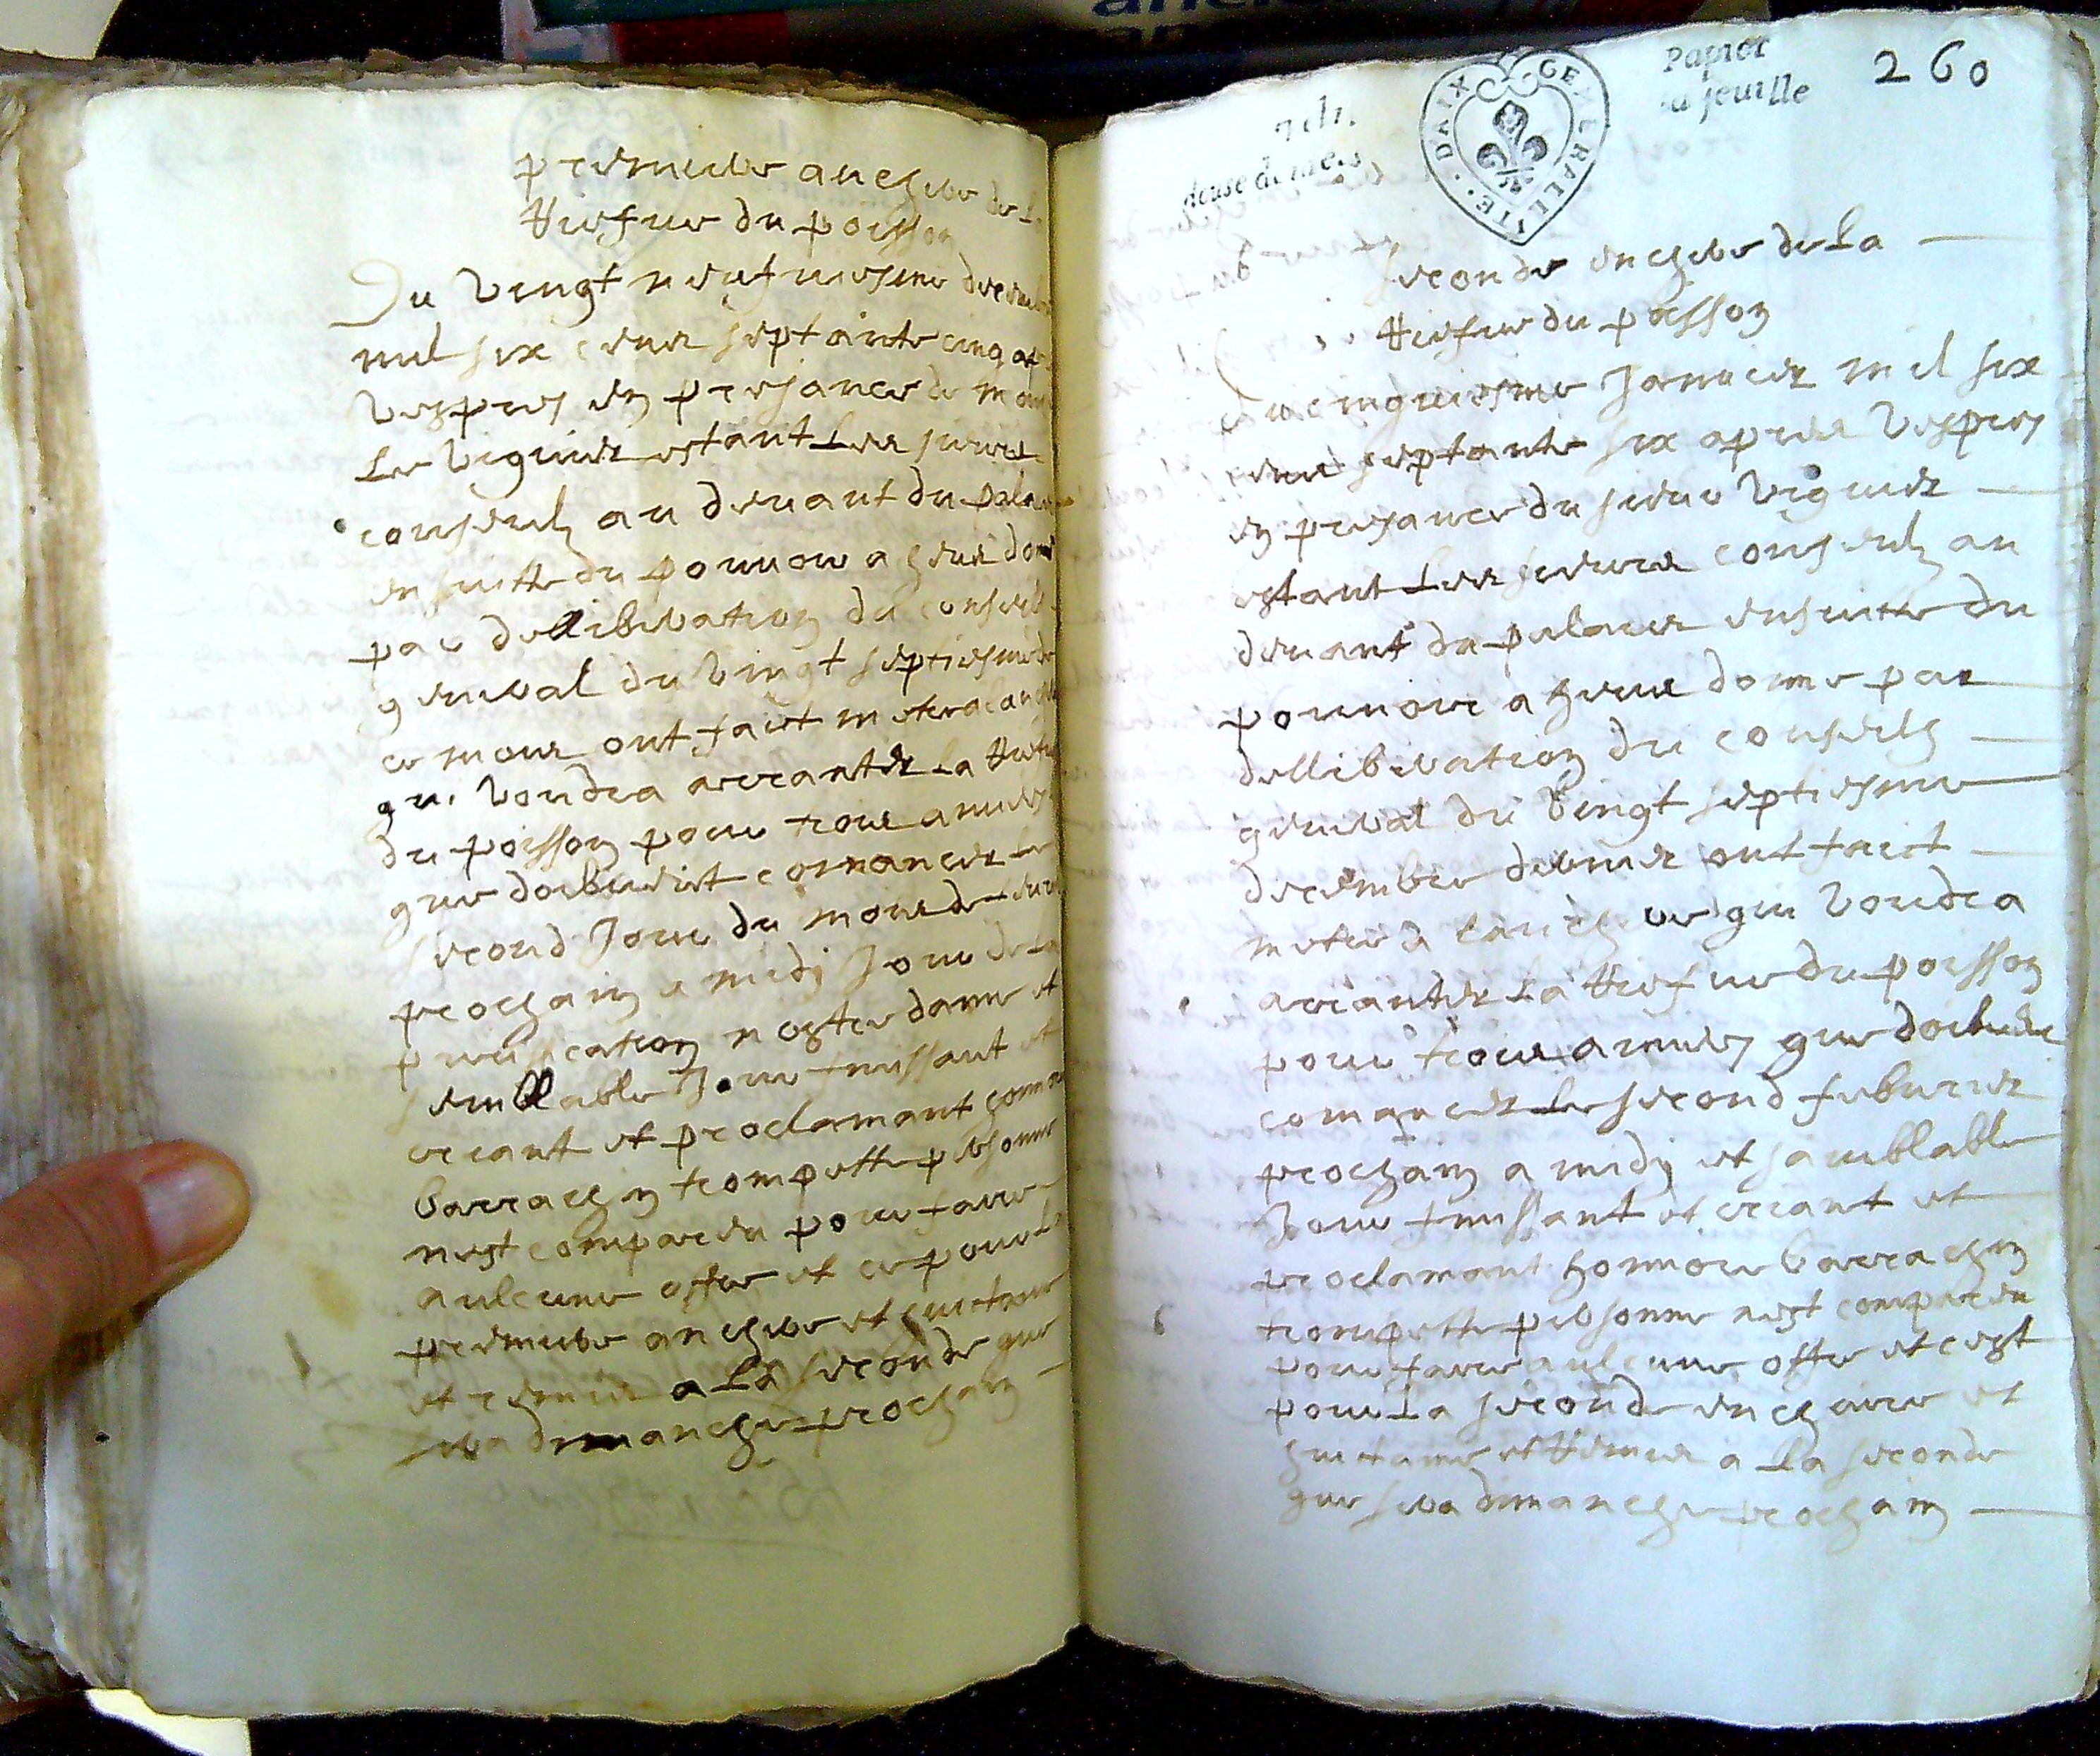 premiere anchere de la
tierseue du poisson
Du vingt neufviesme decembre
mil six cens septante cinq apres
vespres en presance de mon
le viguier estant les sieurs
conseulz au devant du palais
en suitte du pouvoir a heux donne
par delliberation du conseil
general du vingt septiesme de
ce mois ont faict metre a lanchere
qui voudra arranter la tierseue
du poisson pour trois annees
que doibvent comancer le
second jour du mois de feuvrier
prochain a midy jour de la
puriffication nostre dame et
semblable jour finissant et
criant et proclamant honnore
barrachin trompette personne
nest compareu pour faire
aulcune offre et ce pour la
premiere anchere et huictene
et remis a la seconde que
sera dimanche prochain
ancie
7 ch.
douse deniers
GENERALLITE DAIX
Papier
la feuille
260
Seconde enchere de la
tierseue du poisson
Du cinquiesme Janvier mil six
cens septante six apres vespres
en presance du sieur viguier
estant les sieurs conseulz au
devant du palais ensuitte du
pouvoir a heux donne par
delliberation du conseilh
general du vingt septiesme
decembre dernier ont faict
metre a lanchere qui voudra
arranter la tierseue du poisson
pour trois annees que doibvent
comancer le second febvrier
prochain a midy et samblable
jour finissant et criant et
proclamant honnore barrachin
trompette personne nest compareu
pour faire aulcune offre et cest
pour la seconde enchaire et
huictene et remis a la seconde
que sera dimanche prochain